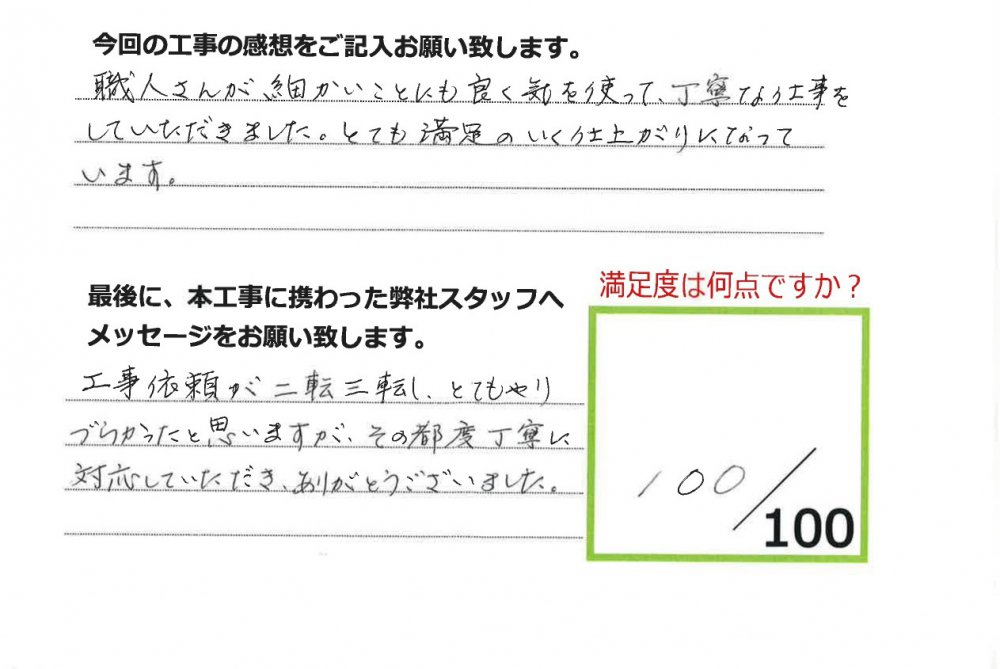 今回の工事の感想をご記入お願い致します。
職人さんが細かいことにも良く気を使って、丁寧な仕事を
していただきました。とても満足のいく仕上がりになって
います。
最後に、本工事に携わった弊社スタッフへ
メッセージをお願い致します。
工事依頼が二転三転し、とてもやり
づらかったと思いますが、その都度丁寧に
対応していただき、ありがとうございました。
満足度は何点ですか？
100/100